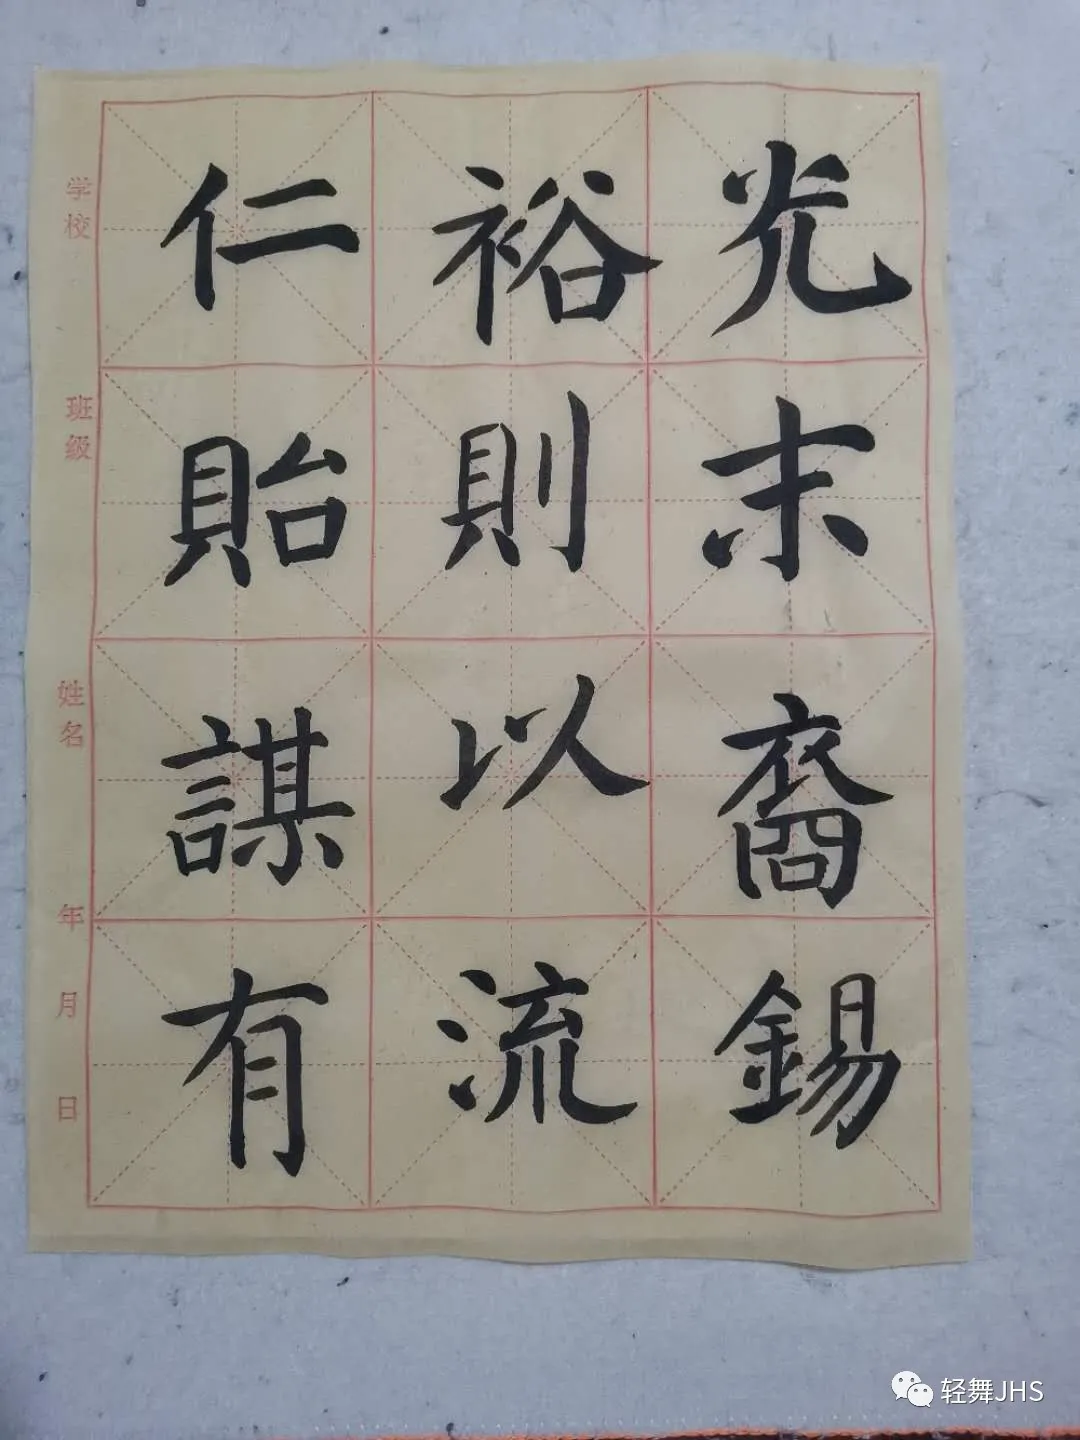 光末裔錫
裕則以流
仁貽謀有
学校
班級
姓名
年
月
日
轻舞JHS